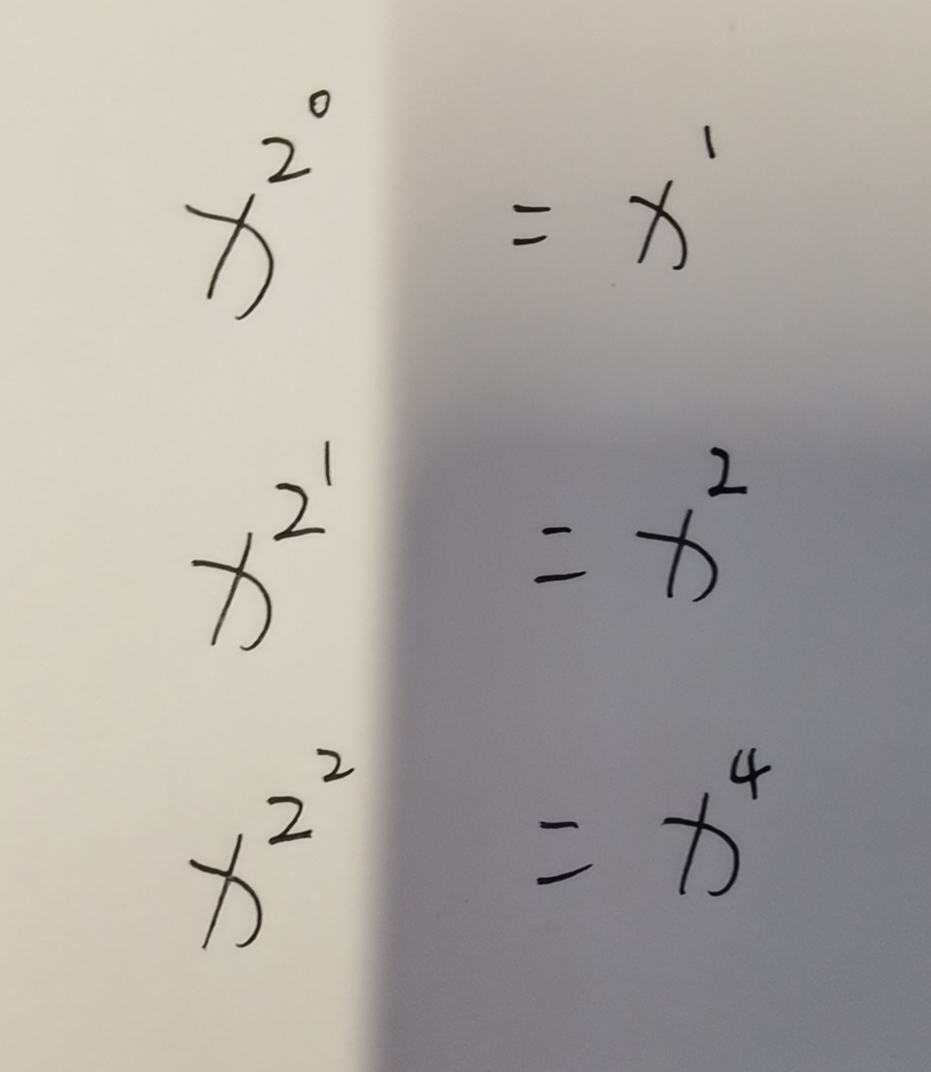 x^{2^0} = x^1
x^{2^1} = x^2
x^{2^2} = x^4